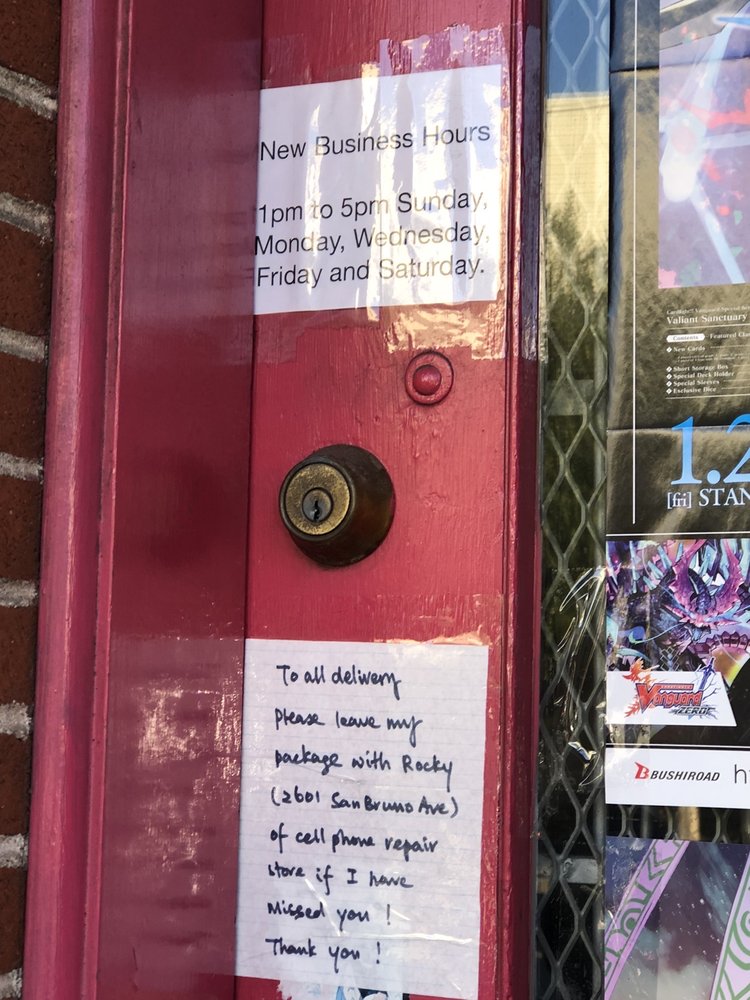 New Business Hours
1pm to 5pm Sunday,
Monday, Wednesday,
Friday and Saturday.
To all delivery
please leave my
package with Rocky
(2601 San Bruno Ave)
of cell phone repair
store if I have
missed you !
Thank you !
Valiant Sanctuary
Contents Featured Cla
New Cards
Short Storage Box
Special Deck Holder
Special Sleeves
Exclusive Dice
1.2
[fri] STAN
Vanguard
ZERO
BUSHIROAD h